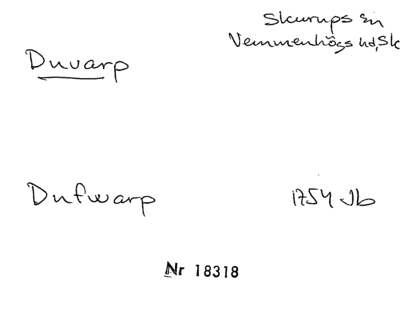 Skurups sn
Vemmenhögs hd, Sk
Duvarp
Dufwarp 1754 Jb
Nr 18318